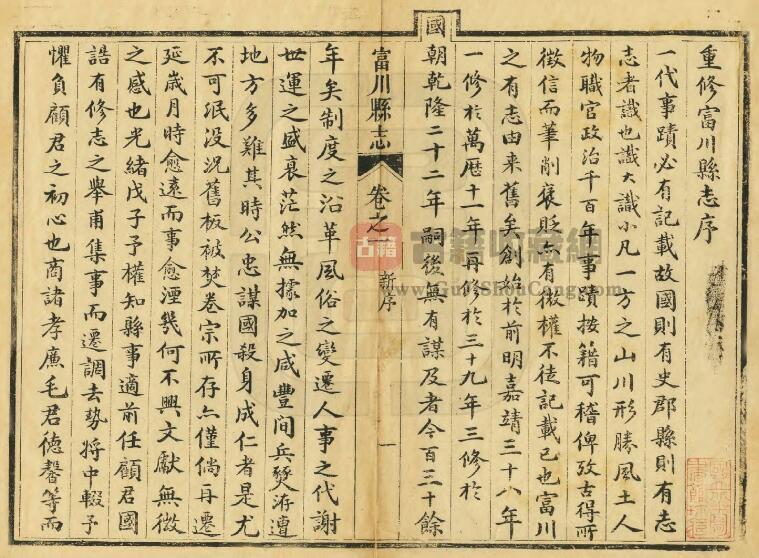 重修富川縣志序
一代事蹟必有記載故國則有史郡縣則有志
志者識也識大識小凡一方之山川形勝風土人
物職官政治千百年事蹟按籍可稽俾攷古得所
徵信而筆削褒貶亦有微權不徒記載已也富川
之有志由来舊矣創始於前明嘉靖三十八年
一修於萬曆十一年再修於三十九年三修於
國
朝乾隆二十二年嗣後無有謀及者今百三十餘
富川縣志
卷之一
新序
一
年矣制度之沿革風俗之變遷人事之代謝
世運之盛衰茫然無據加之咸豐間兵燹洊遭
地方多難其時公忠謀國殺身成仁者是尤
不可泯没況舊板被焚卷宗所存亦僅倘再遷
延歲月時愈遠而事愈湮幾何不興文獻無徵
之感也光緒戊子予權知縣事適前任顧君國
誥有修志之舉甫集事而遷調去勢將中輟予
懼負顧君之初心也商諸孝廉毛君德馨等而
古籍
古籍收藏網
www.GujiShouCang.com